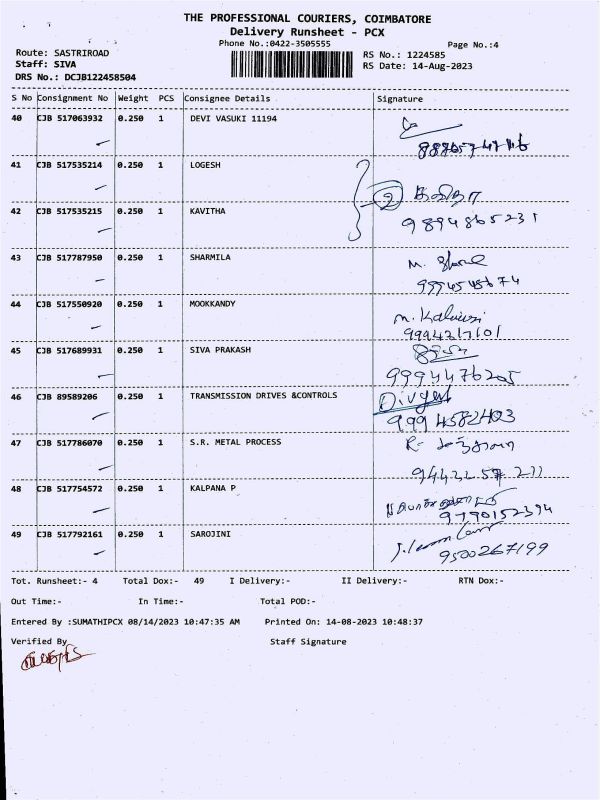 THE PROFESSIONAL COURIERS, COIMBATORE
Delivery Runsheet - PCX
Phone No.:0422-3505555
Page No.:4
Route: SASTRIROAD
RS No.: 1224585
Staff: SIVA
RS Date: 14-Aug-2023
DRS No.: DCJB122458504
S No Consignment No Weight PCS Consignee Details Signature
40 CJB 517063932 0.250 1 DEVI VASUKI 11194
41 CJB 517535214 0.250 1 LOGESH
2
42 CJB 517535215 0.250 1 KAVITHA
9894865231
43 CJB 517787950 0.250 1 SHARMILA
44 CJB 517550920 0.250 1 MOOKKANDY
9994217101
45 CJB 517689931 0.250 1 SIVA PRAKASH
9994476205
46 CJB 89589206 0.250 1 TRANSMISSION DRIVES &CONTROLS
9994582403
47 CJB 517786070 0.250 1 S.R. METAL PROCESS
48 CJB 517754572 0.250 1 KALPANA P
9790152394
49 CJB 517792161 0.250 1 SAROJINI
9500267199
Tot. Runsheet:- 4 Total Dox:- 49 I Delivery:- II Delivery:- RTN Dox:-
Out Time:- In Time:- Total POD:-
Entered By :SUMATHIPCX 08/14/2023 10:47:35 AM Printed On: 14-08-2023 10:48:37
Verified By Staff Signature